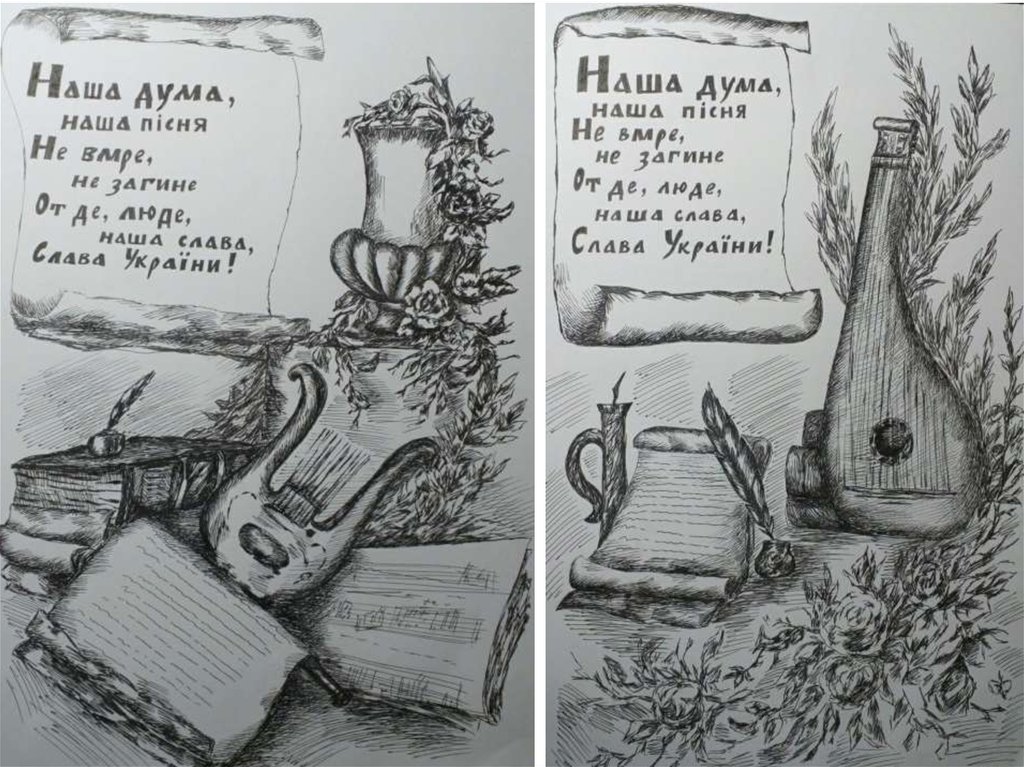 Наша дума,
наша пісня
Не вмре,
не загине
От де, люде,
наша слава,
Слава України!
Наша дума,
наша пісня
Не вмре,
не загине
От де, люде,
наша слава,
Слава України!